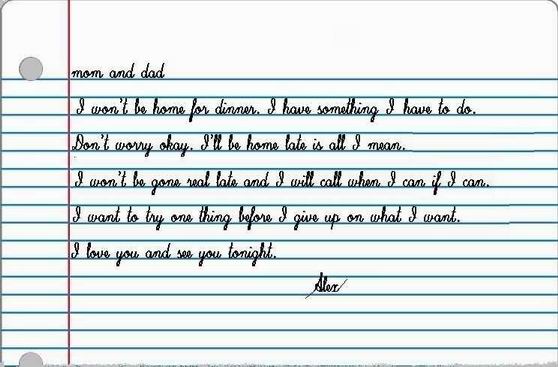 mom and dad
I won't be home for dinner. I have something I have to do.
Don't worry okay. I'll be home late is all I mean.
I won't be gone real late and I will call when I can if I can.
I want to try one thing before I give up on what I want.
I love you and see you tonight.
Alex